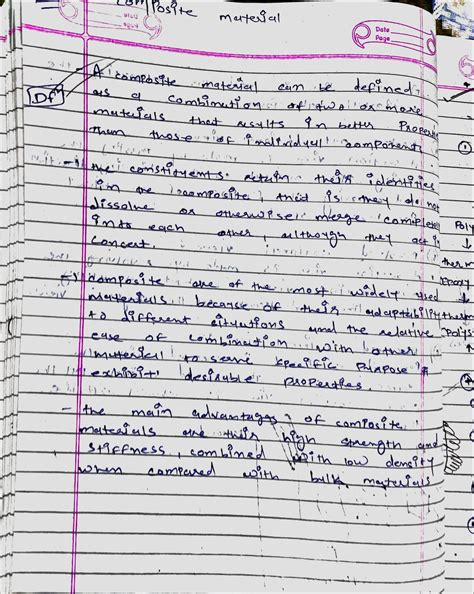 Composite material
Date
Page
A composite material can be defined
Dfn
as a combination of two or more
materials that results in better Propert
then those of individual component
- the constituents retain their identities
in the composite, that is they do not
dissolve or otherwise merge complete
into each other, although they act in
concert.
- composite are of the most widely used
materials because of their adaptability
to different situtions and the relative
ease of combination with other
material to serve specific purpose &
exhibit desirable properties.
- the main advantages of composite
materials are their high strength and
stiffness, combined with low density
when compared with bulk materials
Poly